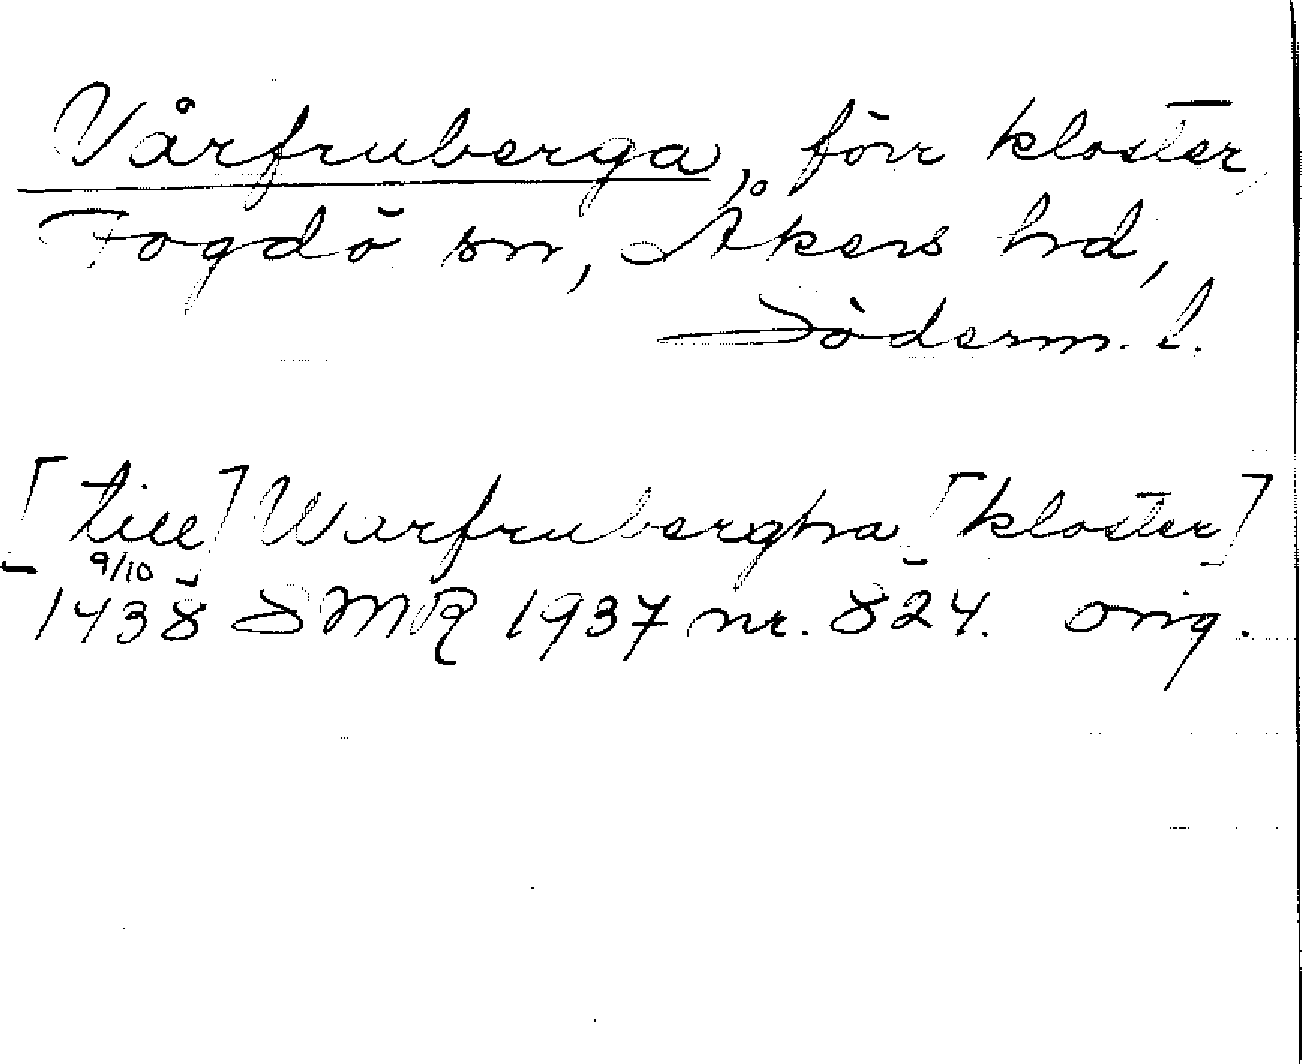 Vårfruberga, förr kloster,
Fogdö sn, Åkers hd,
Söderm. l.
[till] Warfrubergha [kloster]
9/10 1438 SMR 1937 nr. 824. orig.